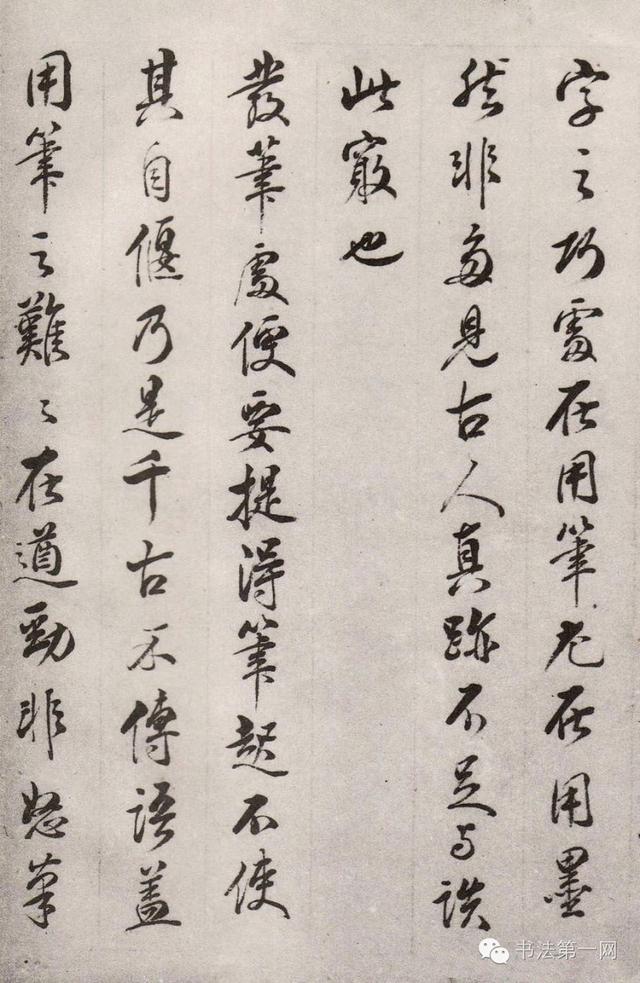 字之巧處在用筆尤在用墨
然非多見古人真跡不足与談
此竅也
發筆處便要提得筆起不使
其自偃乃是千古不傳語蓋
用筆之難々在遒勁非怒筆
书法第一网